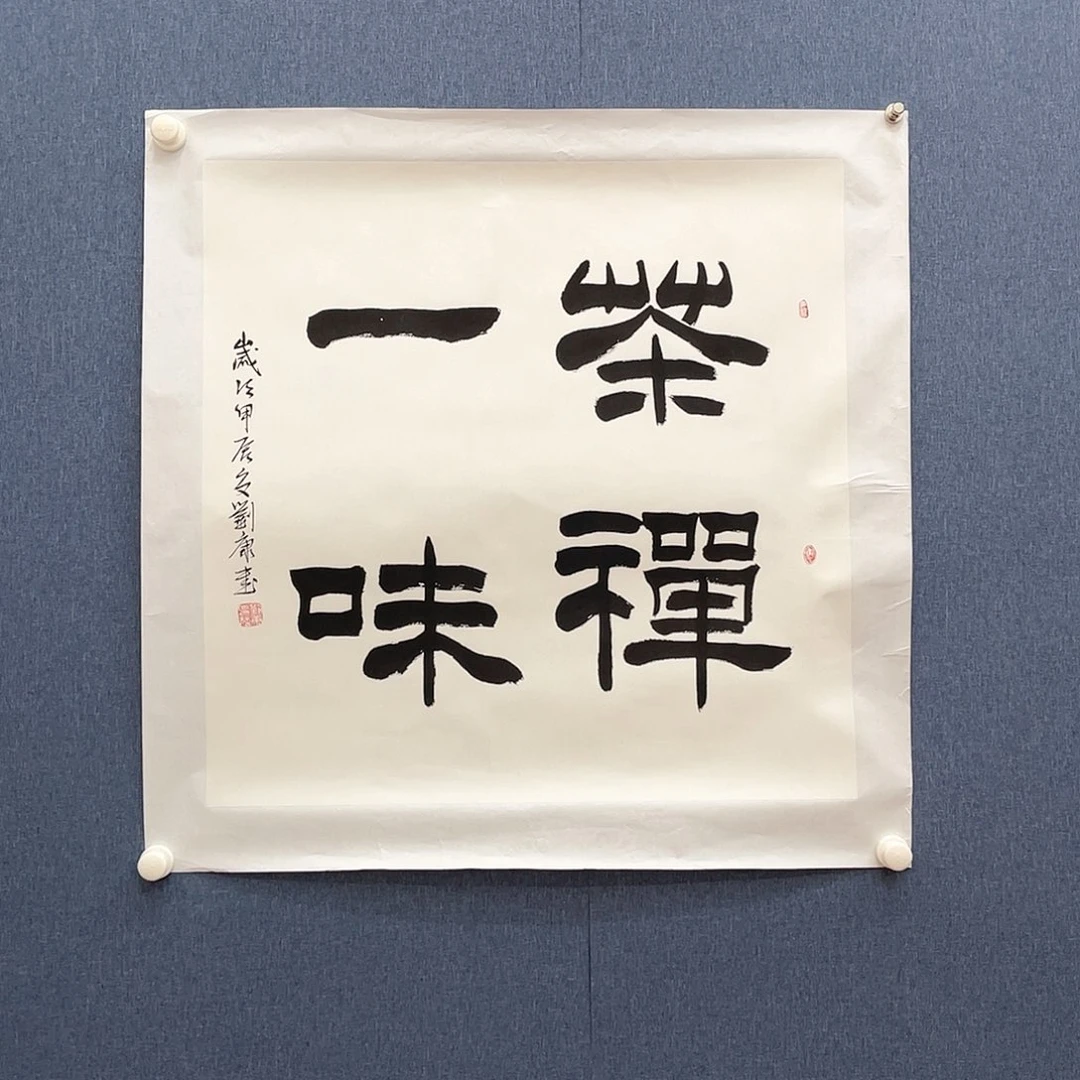 茶禪
一味
歲次甲辰冬劉康書